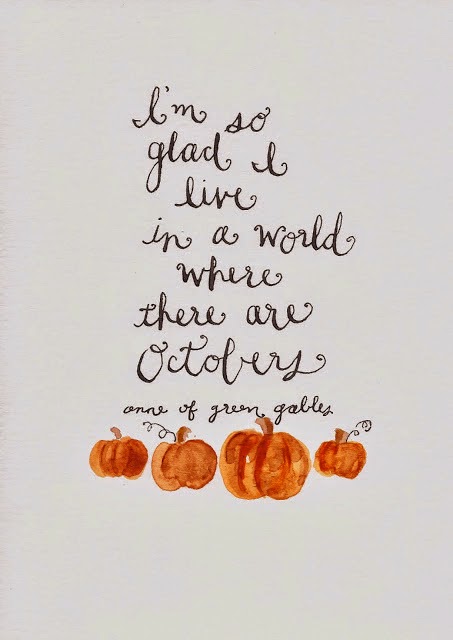 I'm so
glad I
live
in a world
where
there are
Octobers
anne of green gables